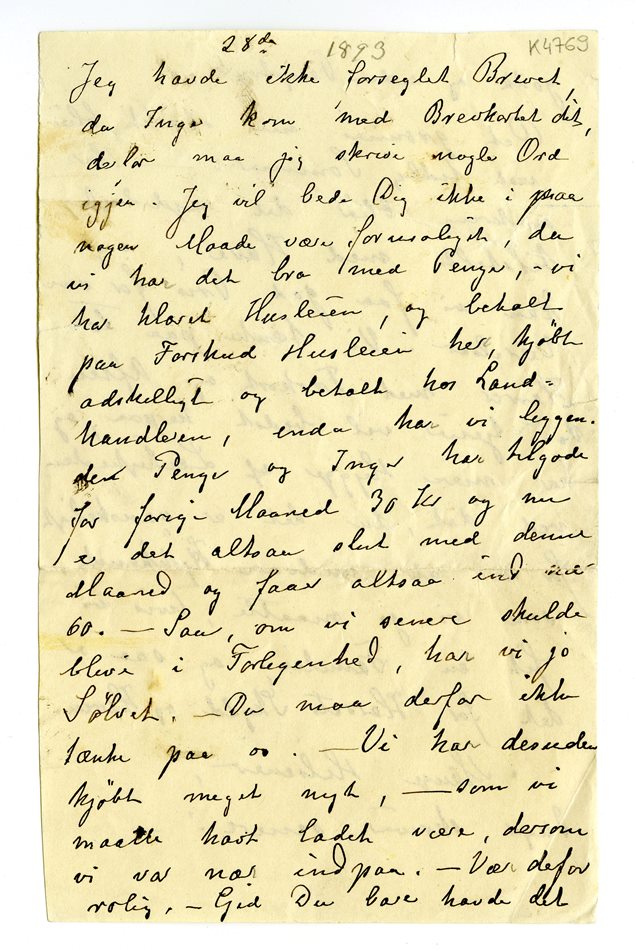 28de 1893 K4769
Jeg havde ikke forseglet Brevet,
da Inger kom med Brevkortet dit,
defor maa jeg skrive nogle Ord
igjen Jeg vil bede Dig ikke i paa
nogen Maade være foruroliget, da
vi har det bra med Penge, - vi
har klaret Husleien, og betalt
paa Forskud Husleien her, kjøbt
adskelligt og betalt hos Land=
handleren, enda har vi liggen-
den Penge og Inger har tilgode
for forige Maaned 30 Kr og nu
er det altsaa slut med denne
Maaned og faar altsaa ind
60. — Saa, om vi senere skulde
blive i Forlegenhed, har vi jo
Sølvet. — Du maa derfor ikke
tænke paa os. — Vi har desuden
kjøbt meget nyt, — som vi
maatte havt ladet være, dersom
vi var nær indpaa. — Vær defor
rolig, — Gid Du bare havde det